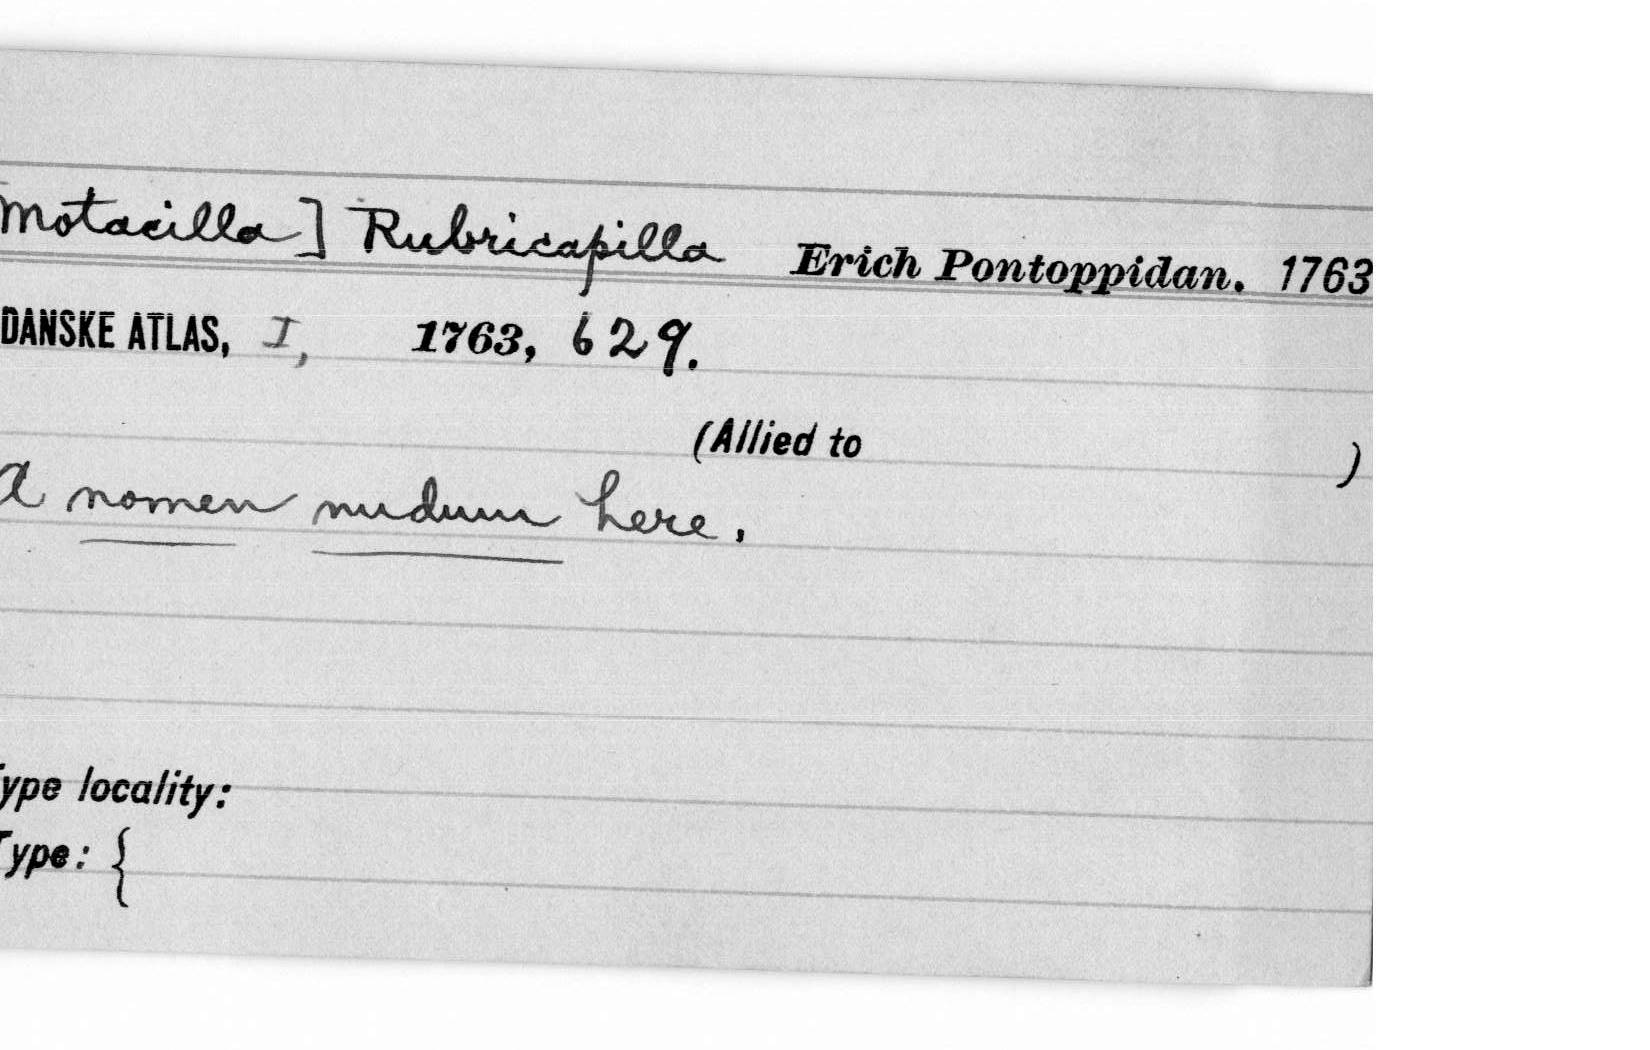 Motacilla] Rubricapilla Erich Pontoppidan. 1763
DANSKE ATLAS, I, 1763, 629.
(Allied to )
A nomen nudum here.
Type locality:
Type: {